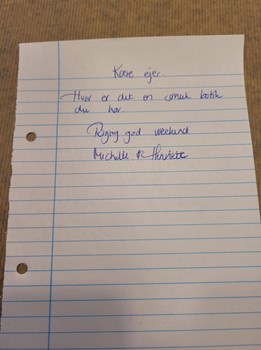 Kære ejer
Hvor er det en smuk butik
du har
Rigtig god weekend
Michelle & Henriette